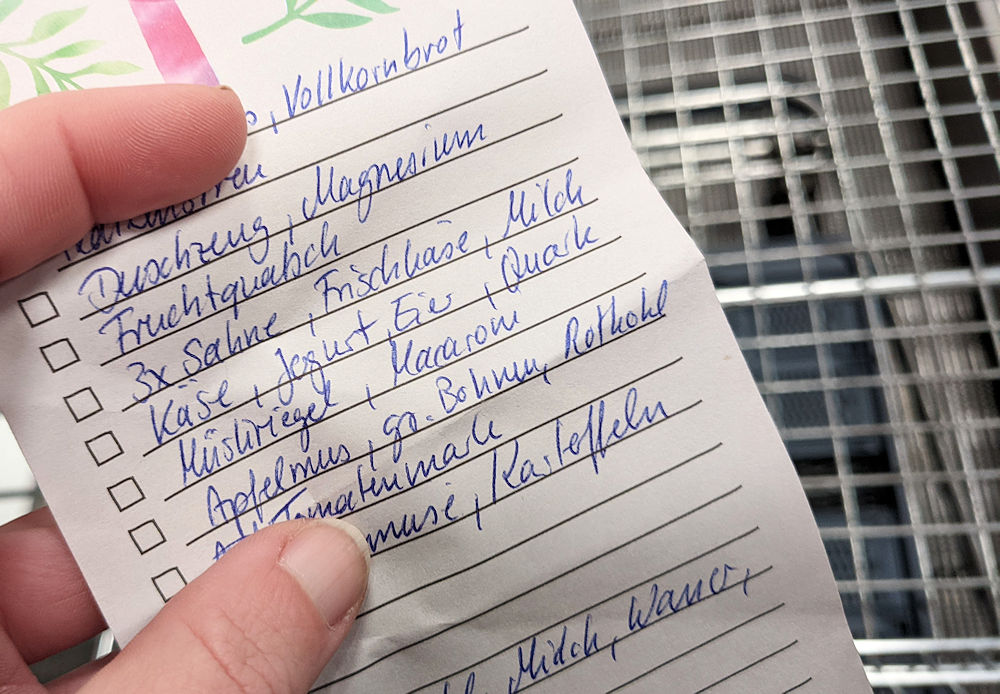 , Vollkornbrot
Duschzeug, Magnesium
Fruchtquatsch
3x Sahne, Frischkäse, Milch
Käse, Jogurt, Eier, Quark
Müsliriegel, Macaroni
Apfelmus, gr. Bohnen, Rotkohl
Tomatenmark
Kartoffeln
Milch, Wasser,